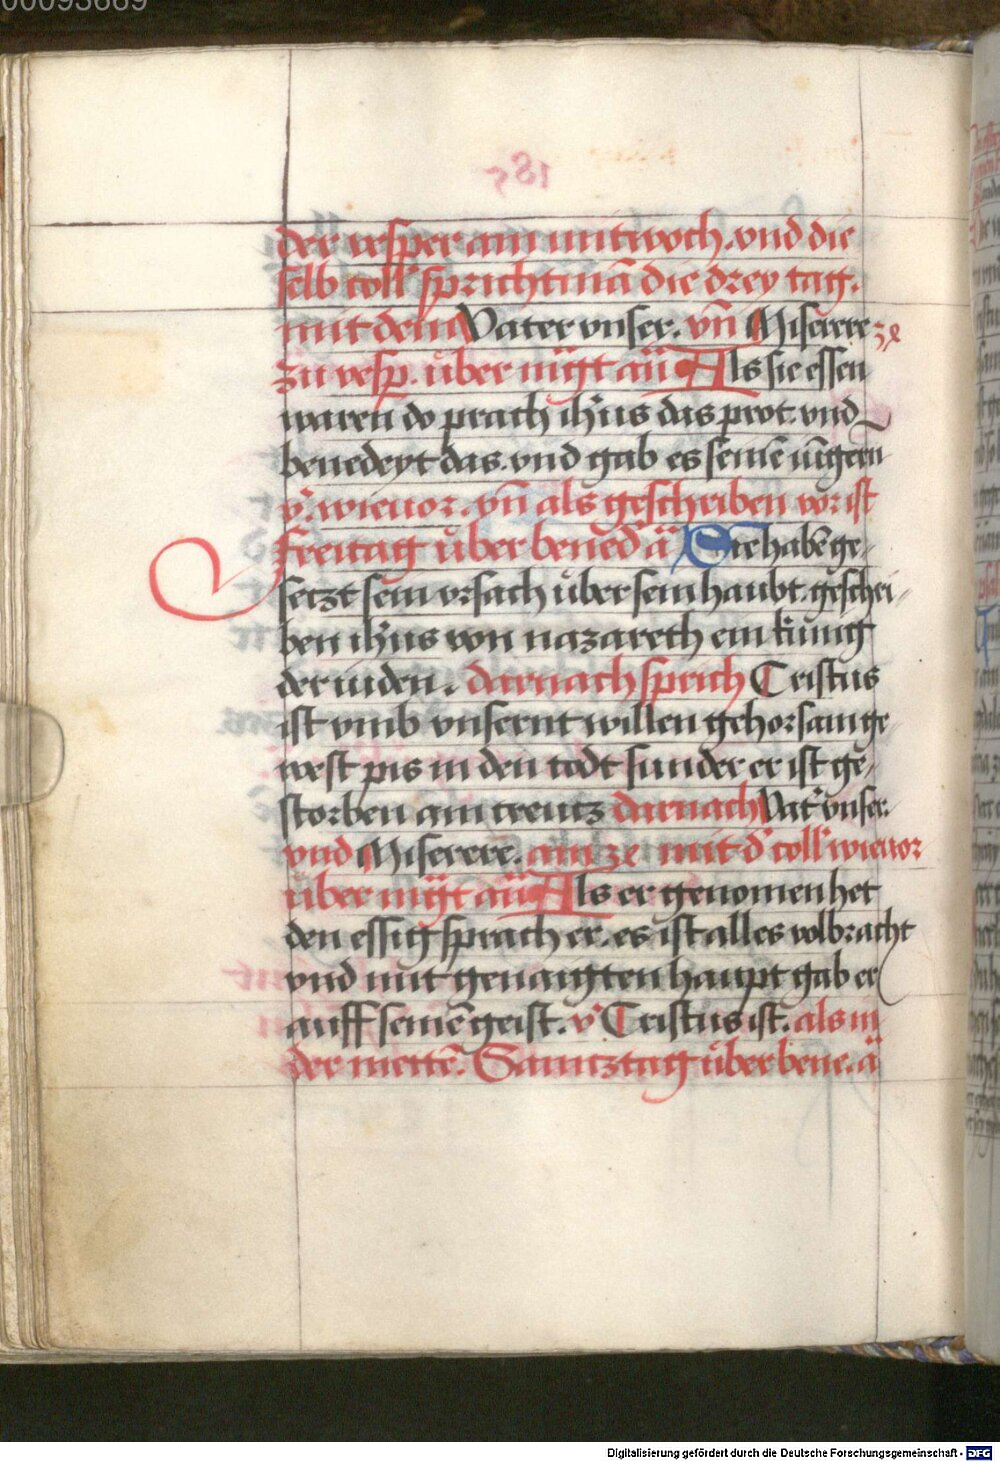 00093669
der vesper am mitwoch. vnd die
selb coll' spricht mā die drey tag.
mit dem Vater vnser. vn̄ Miserere zc
zů vesp. über mg̅t an̄ Als sie essen
waren do prach ih̄us das prot. vnd
benedeyt das. vnd gab es seinē iūgern
v̾. wie uor. vn̄ als geschriben vor ist
Freitag über bened̾ ā Sie habē ge-
setzt sein vrsach über sein haubt. geschri-
ben ih̄us von nazareth ein künig
der iuden. darnach sprich Cristus
ist vmb vnsernt willen gehorsam ge
west pis in den todt sunder er ist ge-
storben am creutz darnach Vat̾ vnser.
vnd Miserere. am ze mit d̾ coll' wie uor
über mg̅t an̄ Als er genomen het
den essig sprach er. es ist alles volbracht
vnd mit genaigten haupt gab er
auff seinē geist. v̾ Cristus ist. als in
der mettē. Samtztag über bene. ā
Digitalisierung gefördert durch die Deutsche Forschungsgemeinschaft - DFG